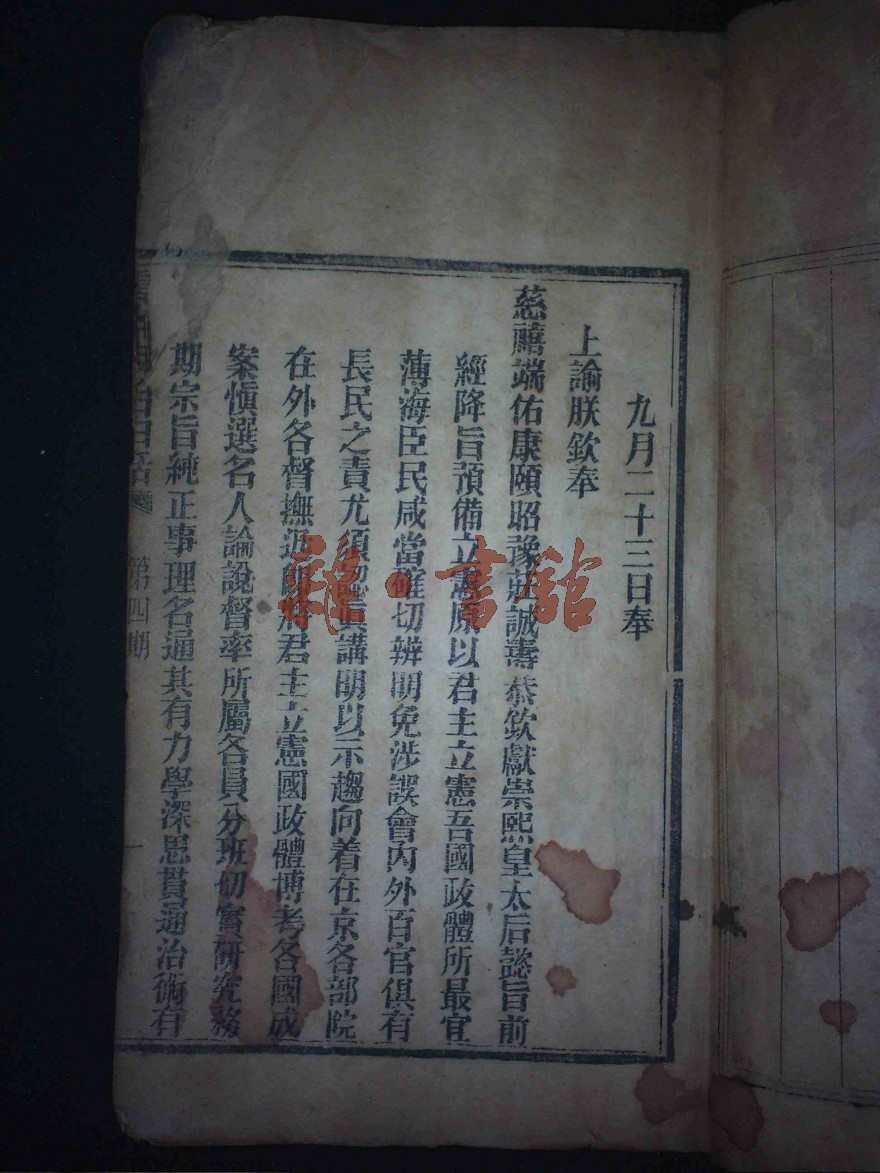 九月二十三日奉
上諭朕欽奉
慈禧端佑康頤昭豫莊誠壽恭欽獻崇熙皇太后懿旨前
經降旨預備立憲原以君主立憲吾國政體所最宜
薄海臣民咸當確切辨明免涉誤會內外百官俱有
長民之責尤須認眞講明以示趨向着在京各部院
在外各督撫迅飭將君主立憲國政體博考各國成
案愼選名人論說督率所屬各員分班切實研究務
期宗旨純正事理名通其有力學深思貫通治術有
第四期
一
雜·書館